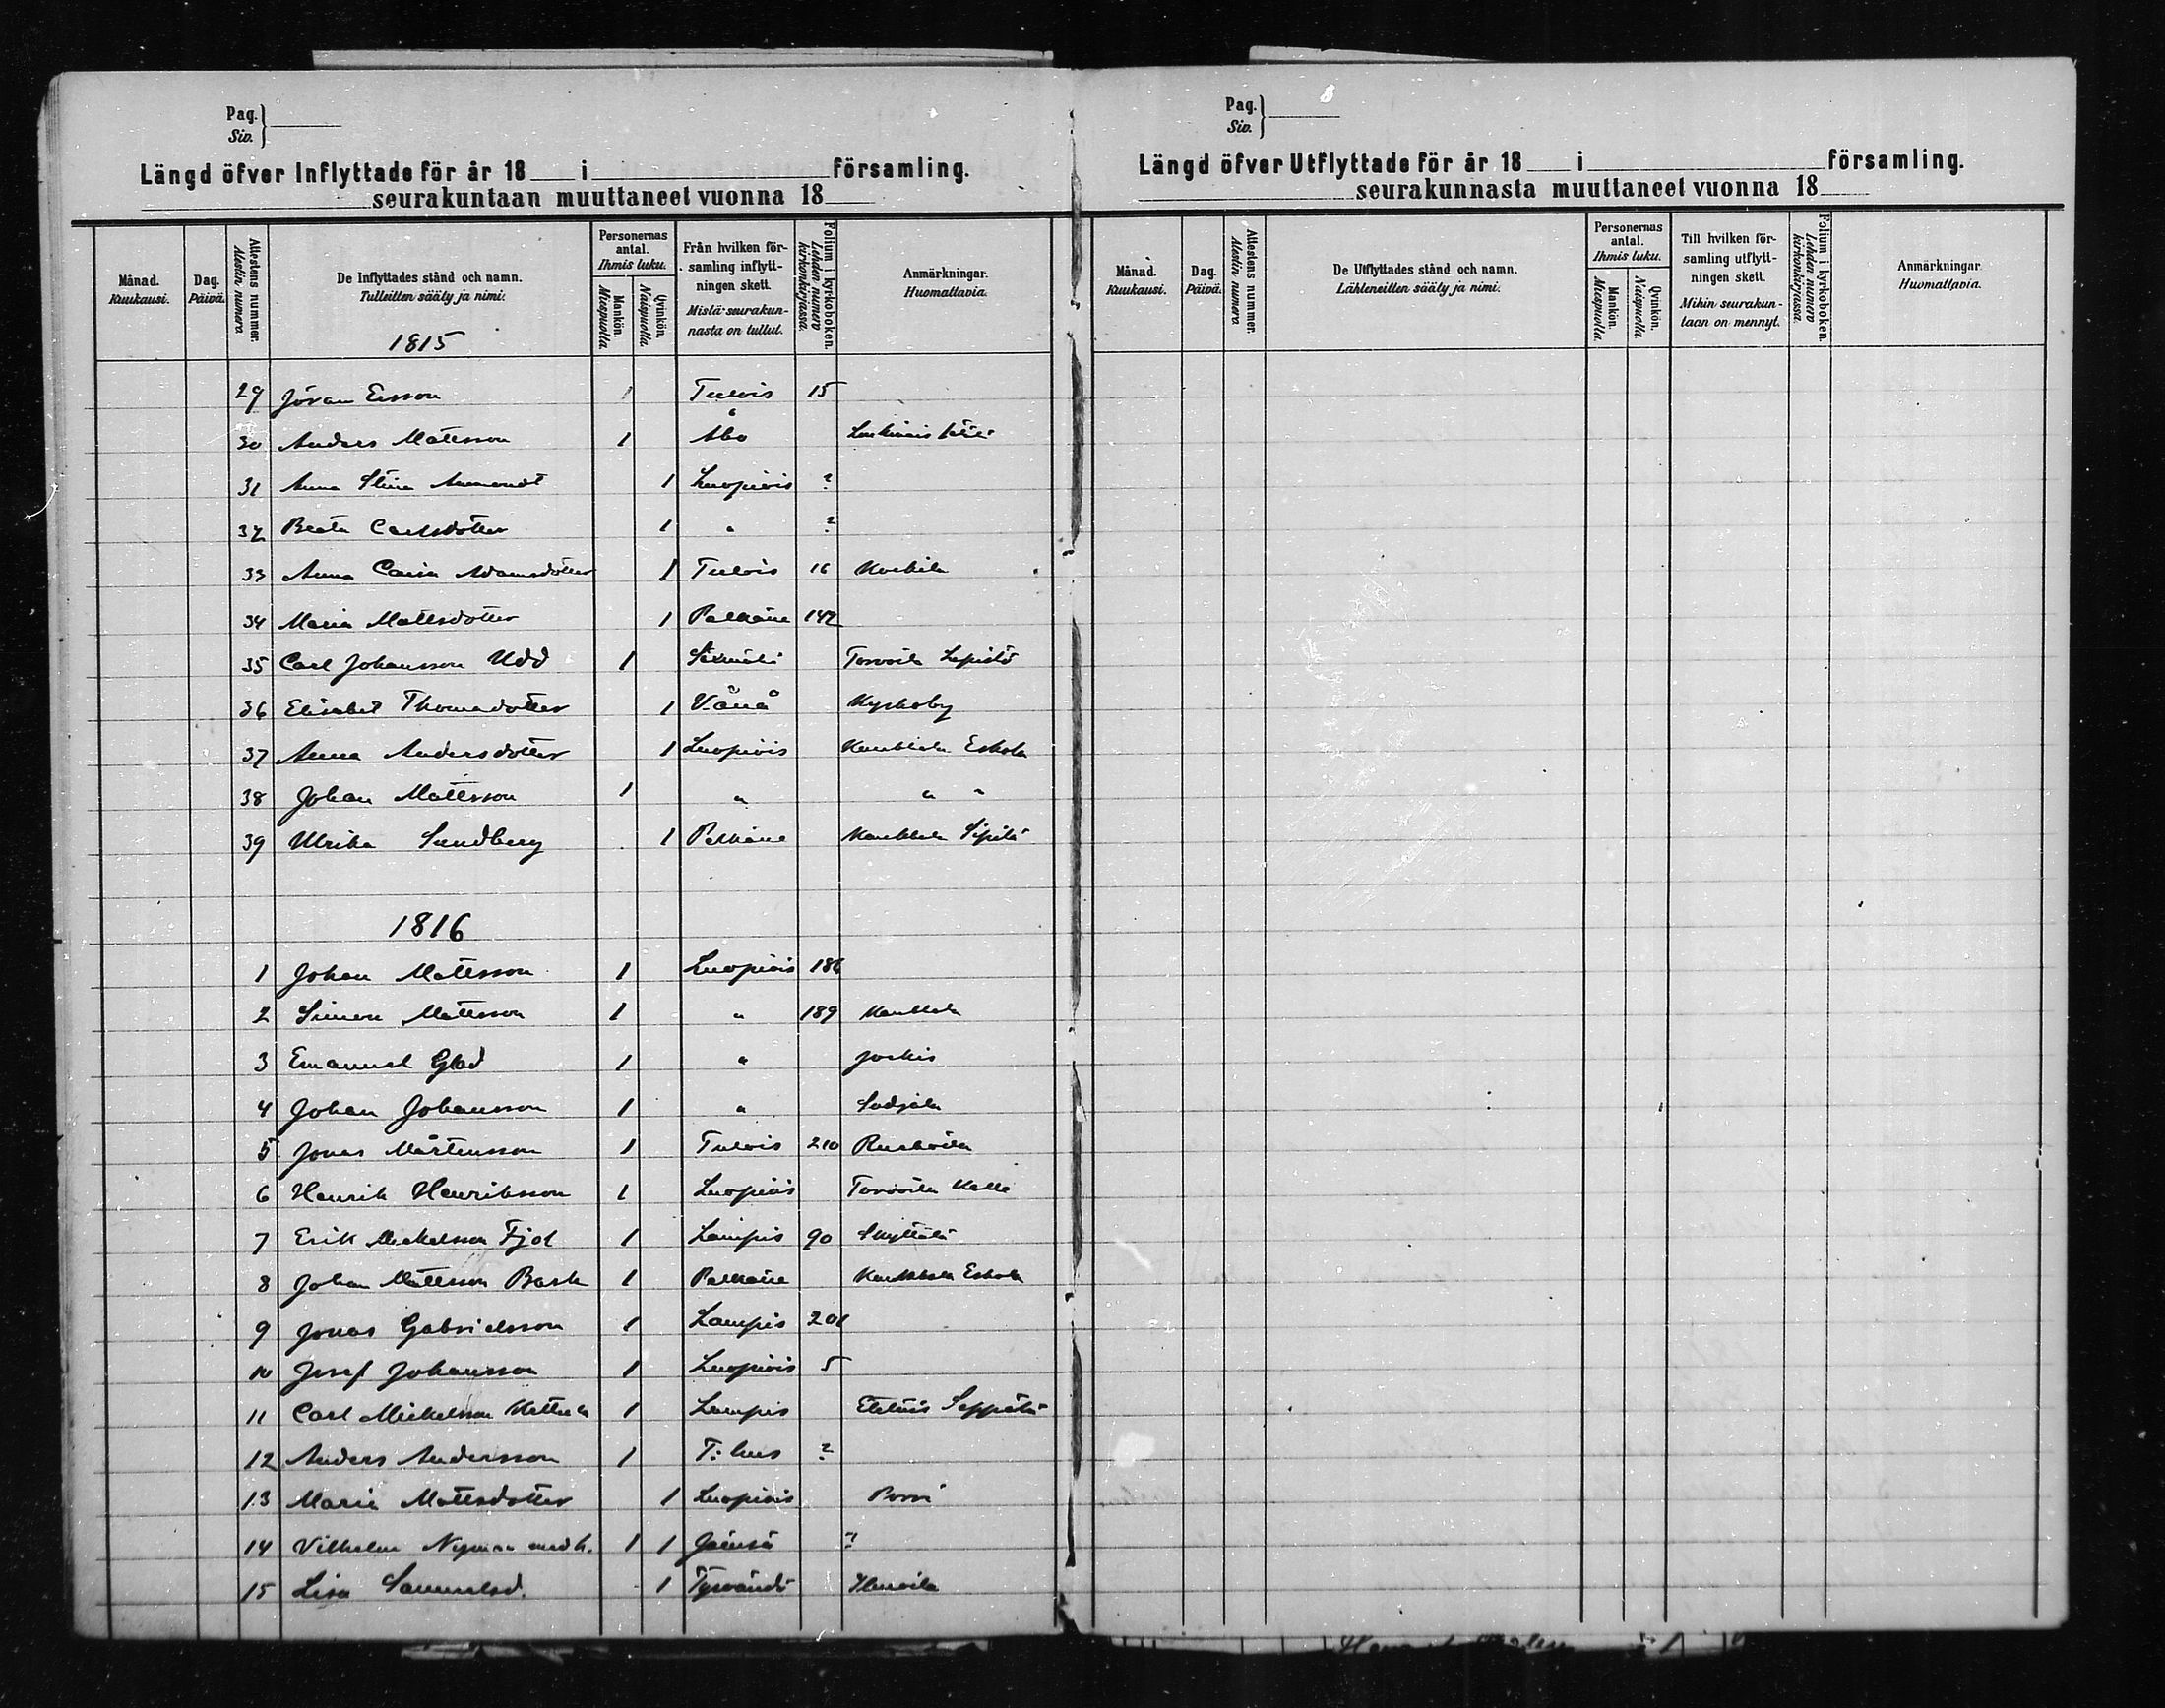 Pag.
Siv.
Längd öfver Inflyttade för år 18 i församling.
seurakuntaan muuttaneet vuonna 18
Månad.
Kuukausi.
Dag.
Päivä.
Attestens nummer.
Atestin numero
De Inflyttades stånd och namn.
Tulleitten sääty ja nimi.
1815
Personernas
antal.
Ihmis luku.
Mankön.
Miespuolia
Qvinkön.
Naispuolia
Från hvilken för-
samling inflytt-
ningen skett.
Mistä seurakun-
nasta on tullut.
Folium i kyrkoboken.
Lehden numero
kirkonkirjassa.
Anmärkningar.
Huomattavia.
29 Jöran Ersson 1 Tulois 15
30 Anders Mattsson 1 Åbo
31 Anna Stina 1 Luopiois ?
32 Beata Carlsdotter 1 " ?
33 Anna Caisa Adamsdotter 1 Tulois 16
34 Maria Mattsdotter 1 Pälkäne 142
35 Carl Johansson Udd 1 Lepistö
36 Elisabet Thomasdotter 1 Vånå Kyrkoby
37 Anna Andersdotter 1 Luopiois Eskola
38 Johan Mattsson 1 " " "
39 Ulrika Sundberg 1 Pälkäne Sipilä
1816
1 Johan Mattsson 1 Luopiois 186
2 Simon Mattsson 1 " 189
3 Emanuel Glad 1 "
4 Johan Johansson 1 "
5 Jonas Mårtensson 1 Tulois 210
6 Henrik Henriksson 1 Luopiois
7 Erik Mickelsson 1 Lampis 90 Skyttälä
8 Johan Mattsson Bask 1 Pälkäne Eskola
9 Jonas Gabrielsson 1 Lampis 201
10 Josef Johansson 1 Luopiois 5
11 Carl Mickelsson 1 Lampis Seppälä
12 Anders Andersson 1 T:hus ?
13 Maria Mattsdotter 1 Luopiois
14 Vilhelm Nyman med h. 1 1 Jämsä ?
15 Lisa Samuelsd. 1 Tyrvändö
Pag.
Siv.
Längd öfver Utflyttade för år 18 i församling.
seurakunnasta muuttaneet vuonna 18
Månad.
Kuukausi.
Dag.
Päivä.
Attestens nummer.
Atestin numero
De Utflyttades stånd och namn.
Lähteneitten sääty ja nimi.
Personernas
antal.
Ihmis luku.
Mankön.
Miespuolia
Qvinkön.
Naispuolia
Till hvilken för-
samling utflytt-
ningen skett.
Mihin seurakun-
taan on mennyt.
Folium i kyrkoboken.
Lehden numero
kirkonkirjassa.
Anmärkningar.
Huomattavia.